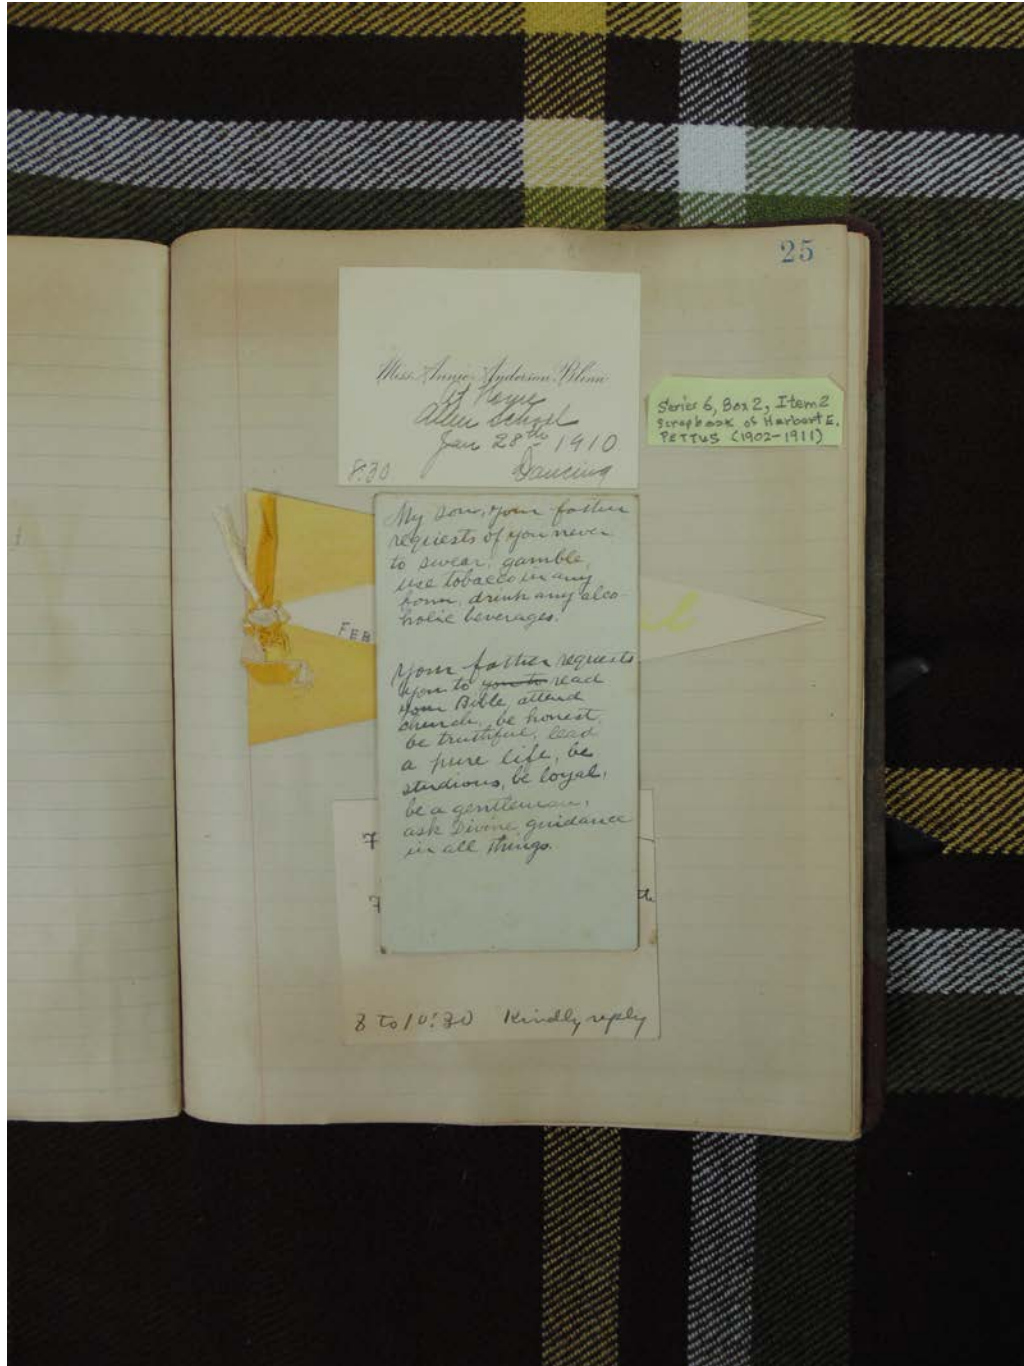 25
Miss Annie Anderson
At Home
Allen School
Jan 28th 1910
8:30 Dancing
Series 6, Box 2, Item 2
Scrapbook of Herbert E.
PETTUS (1902-1911)
My son, your father
requests of you never
to swear, gamble,
use tobacco in any
form, drink any alco
holic beverages.
FEB
Your father requests
you to you to read
your Bible, attend
church, be honest,
be truthful, lead
a pure life, be
studious, be loyal,
be a gentleman,
ask Divine guidance
in all things.
8 to 10:30 Kindly reply